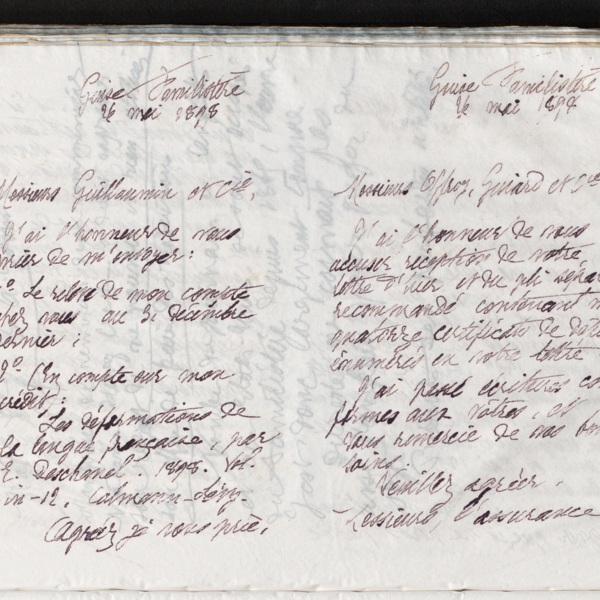 Guise Familistère
26 mai 1898
Messieurs Guillaumin et Cie,
J'ai l'honneur de vous
prier de m'envoyer :
1o Le relevé de mon compte
chez vous au 31 décembre
dernier ;
2o En compte sur mon
crédit :
Les déformations de
la langue française, par
E. Deschanel. 1898. Vol.
in-12, Calmann-Lévy.
Agréez je vous prie,
Guise Familistère
26 mai 1898
Messieurs Offroy, Guiard et Cie
J'ai l'honneur de vous
accuser réception de votre
lettre d'hier et du pli séparé
recommandé contenant
quatorze certificats de
énumérés en votre lettre
J'ai passé écritures con
formes aux vôtres, et
vous remercie de vos bons
soins.
Veuillez agréer,
Messieurs, l'assurance